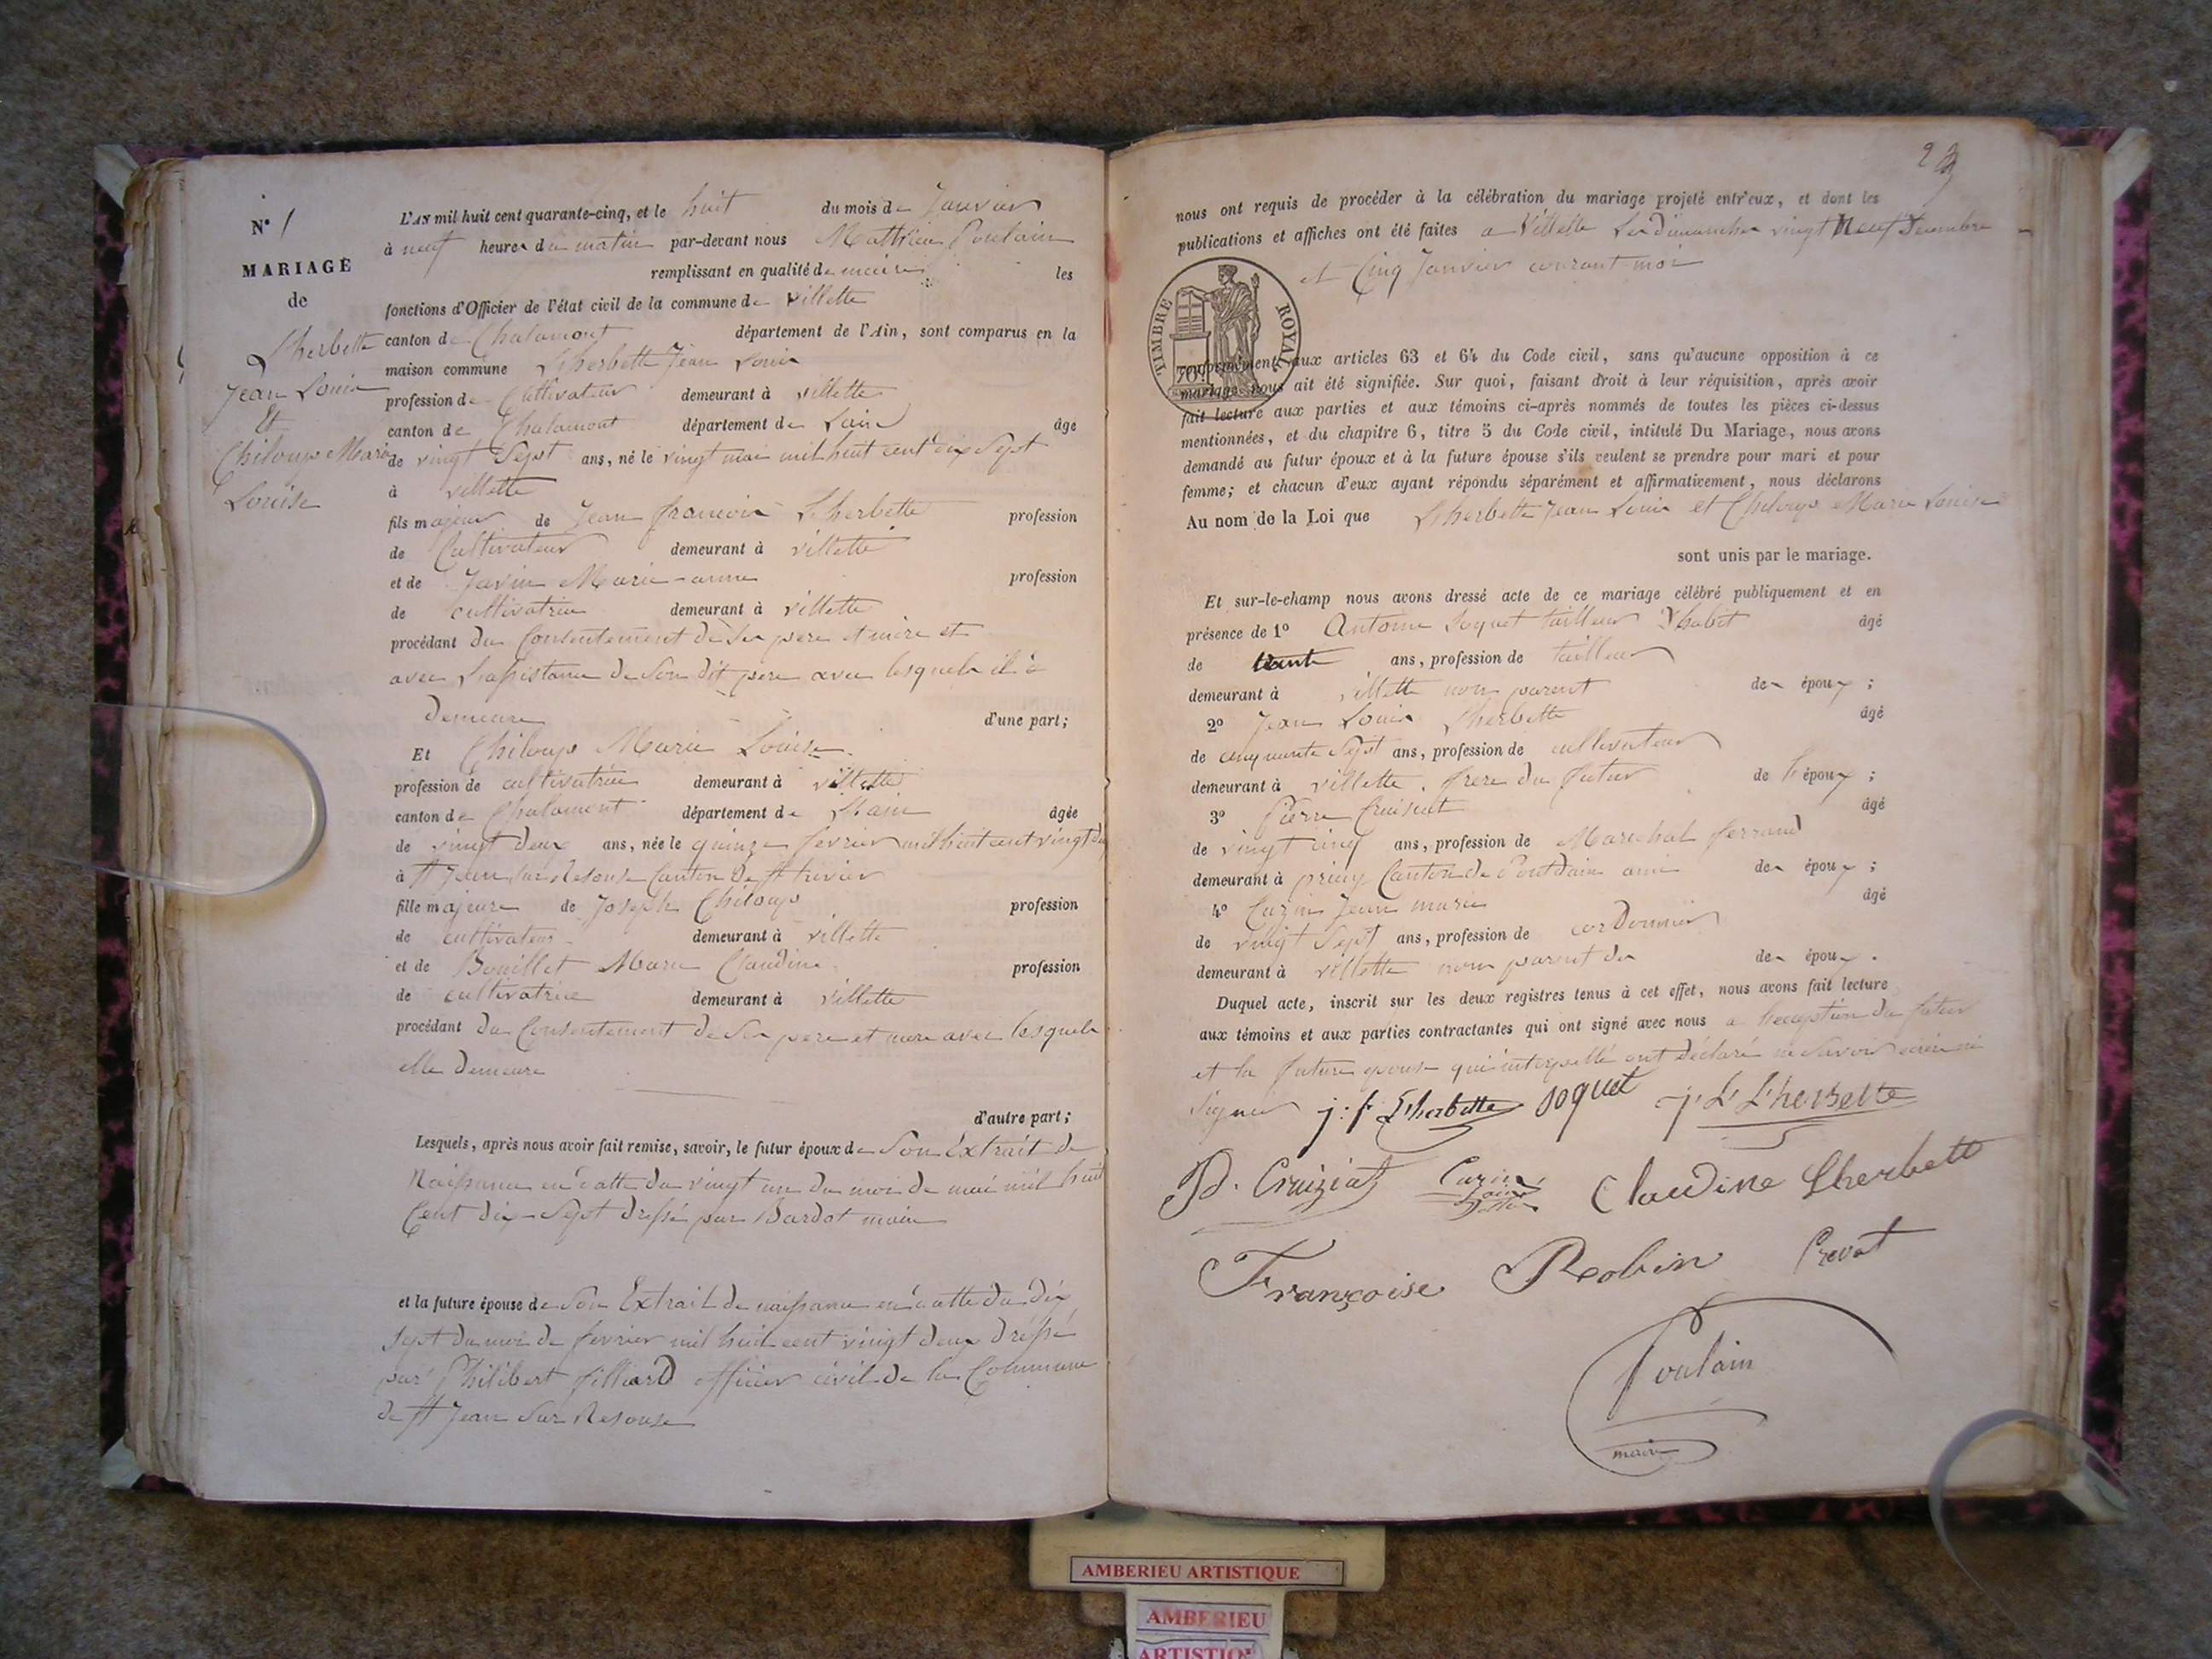 N° 1
MARIAGE
de
Lherbette
Jean Louis
Et
Chiloup Marie
Louise
L'AN mil huit cent quarante-cinq, et le huit du mois de Janvier
à neuf heures du matin par-devant nous Mathieu Poulain
remplissant en qualité de maire les
fonctions d'Officier de l'état civil de la commune de Villette
canton de Chalamont département de l'Ain, sont comparus en la
maison commune Lherbette Jean Louis
profession de Cultivateur demeurant à villette
canton de Chalamont département de Lain âgé
de vingt Sept ans, né le vingt mai mil huit cent dix Sept
à villette
fils majeur de Jean francois Lherbette profession
de Cultivateur demeurant à villette
et de Javin Marie-anne profession
de cultivatrice demeurant à villette
procédant du Consentement de Ses pere et mere et
avec Lassistance de Son dit pere avec lesquels il
demeure d'une part;
Et Chiloup Marie Louise
profession de cultivatrice demeurant à villette
canton de Chalamont département de Lain âgée
de vingt deux ans, née le quinze fevrier mil huit cent vingt deux
à St Jean sur Resouse Canton de St trivier
fille majeure de Joseph Chiloup profession
de cultivateur demeurant à villette
et de Bouillet Marie Claudine profession
de cultivatrice demeurant à villette
procédant du Consentement de Ses pere et mere avec lesquels
elle demeure
d'autre part;
Lesquels, après nous avoir fait remise, savoir, le futur époux de Son Extrait de
Naissance en datte du vingt un du mois de mai mil huit
Cent dix-Sept dressé par Bardot maire
et la future épouse de Son Extrait de naissance en datte du dix
sept du mois de fevrier mil huit cent vingt deux dréssé
par Philibert filliard officier civil de la Commune
de St Jean Sur Resouse
nous ont requis de procéder à la célébration du mariage projeté entr'eux, et dont les
publications et affiches ont été faites a Villette Les dimanches vingt Neuf Decembre
et Cinq Janvier courant mois
TIMBRE ROYAL
70
conformément aux articles 63 et 64 du Code civil, sans qu'aucune opposition à ce
mariage nous ait été signifiée. Sur quoi, faisant droit à leur réquisition, après avoir
fait lecture aux parties et aux témoins ci-après nommés de toutes les pièces ci-dessus
mentionnées, et du chapitre 6, titre 5 du Code civil, intitulé Du Mariage, nous avons
demandé au futur époux et à la future épouse s'ils veulent se prendre pour mari et pour
femme; et chacun d'eux ayant répondu séparément et affirmativement, nous déclarons
Au nom de la Loi que Lherbette Jean Louis et Chiloup Marie Louise
sont unis par le mariage.
Et sur-le-champ nous avons dressé acte de ce mariage célébré publiquement et en
présence de 1° Antoine Soquet tailleur D'habit âgé
de trente ans, profession de tailleur
demeurant à villette non parent des époux;
2° Jean Louis Lherbette âgé
de cinquante Sept ans, profession de cultivateur
demeurant à villette frere du futur de l'époux;
3° Pierre Cruisiat âgé
de vingt cinq ans, profession de Marechal ferrand
demeurant à priay Canton de Pontdain ami des époux;
4° Cuzin Jean marie âgé
de vingt Sept ans, profession de cordonnier
demeurant à villette non parent des des époux.
Duquel acte, inscrit sur les deux registres tenus à cet effet, nous avons fait lecture
aux témoins et aux parties contractantes qui ont signé avec nous a l'exception du futur
et la future epouse qui interpellé ont déclaré ne Savoir écrire ni
Signer j. f Lherbette Soquet j. L Lherbette
P. Cruiziat Cuzin Claudine Lherbett
Françoise Robin Crevat
Poulain
maire
AMBERIEU ARTISTIQUE
AMBERIEU
ARTISTIQ